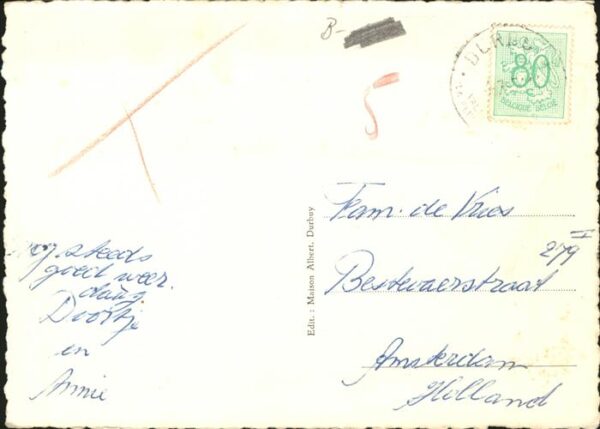 B-
5
80
C
BELGIQUE-BELGIË
nog steeds
goed weer.
daag.
Doortje
en
Annie
Edit. : Maison Albert, Durbuy
Fam. de Vries
279 I
Bestevaerstraat
Amsterdam
Holland